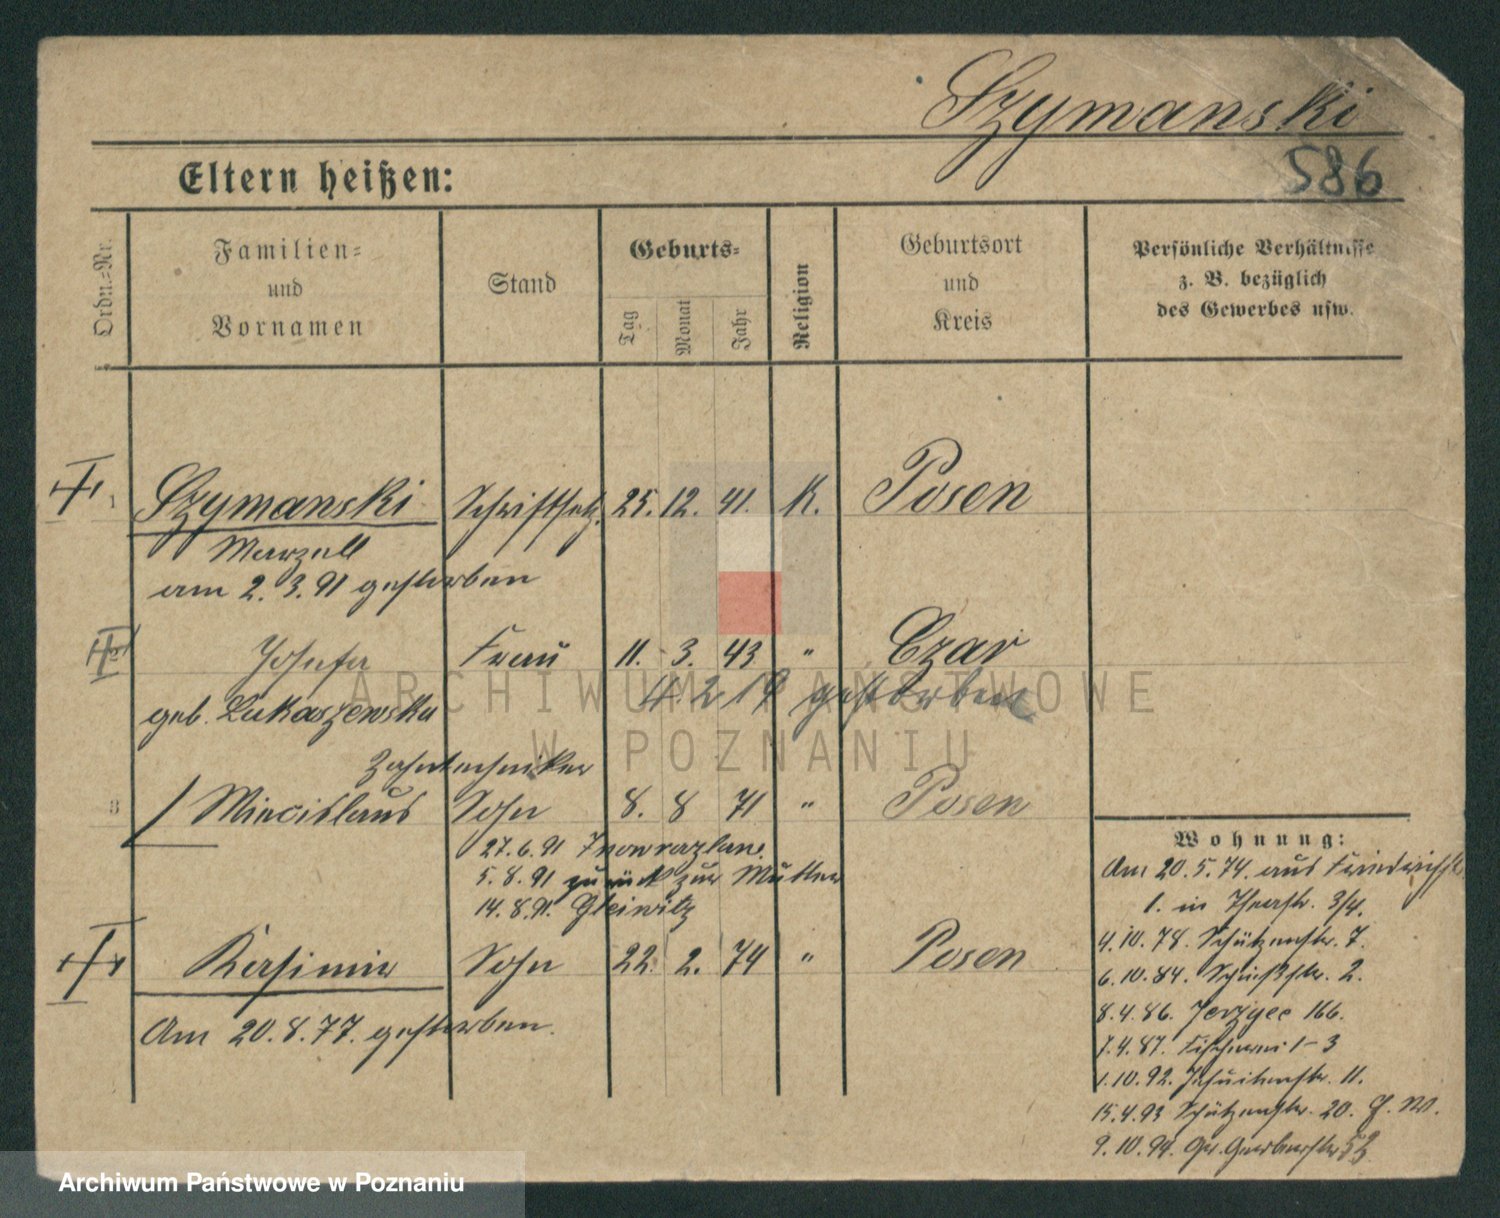 Szymanski
586
Eltern heißen:
Ordn.=Nr.
Familien=
und
Vornamen
Stand
Geburts=
Tag
Monat
Jahr
Religion
Geburtsort
und
Kreis
Persönliche Verhältnisse
z. B. bezüglich
des Gewerbes usw.
1 Szymanski Schriftsetz. 25. 12. 41. K. Posen
Marzell
am 2. 3. 91 gestorben
2 Josefa Frau 11. 3. 43 " Czar
4. 2. 19 gestorben
geb. Lukaszewska
Zahntechniker
3 Miecislaus Sohn 8. 8 71 " Posen
27. 6. 91 Inowrazlaw.
5. 8. 91 zurück zur Mutter
14. 8. 91. Gleiwitz
Kasimir Sohn 22. 2. 74 " Posen
Am 20. 8. 77. gestorben.
Wohnung:
Am 20. 5. 74. aus Friedrichstr.
1. in Thorstr. 3/4.
4. 10. 78. Schützenstr. 7.
6. 10. 84. Schießstr. 2.
8. 4. 86. Jerzyce 166.
7. 4. 87. Fischerei 1-3
1. 10. 92. Jesuitenstr. 11.
15. 4. 93 Schützenstr. 20. H. W.
9. 10. 94. Gr. Gerberstr.
ARCHIWUM PAŃSTWOWE
W POZNANIU
Archiwum Państwowe w Poznaniu